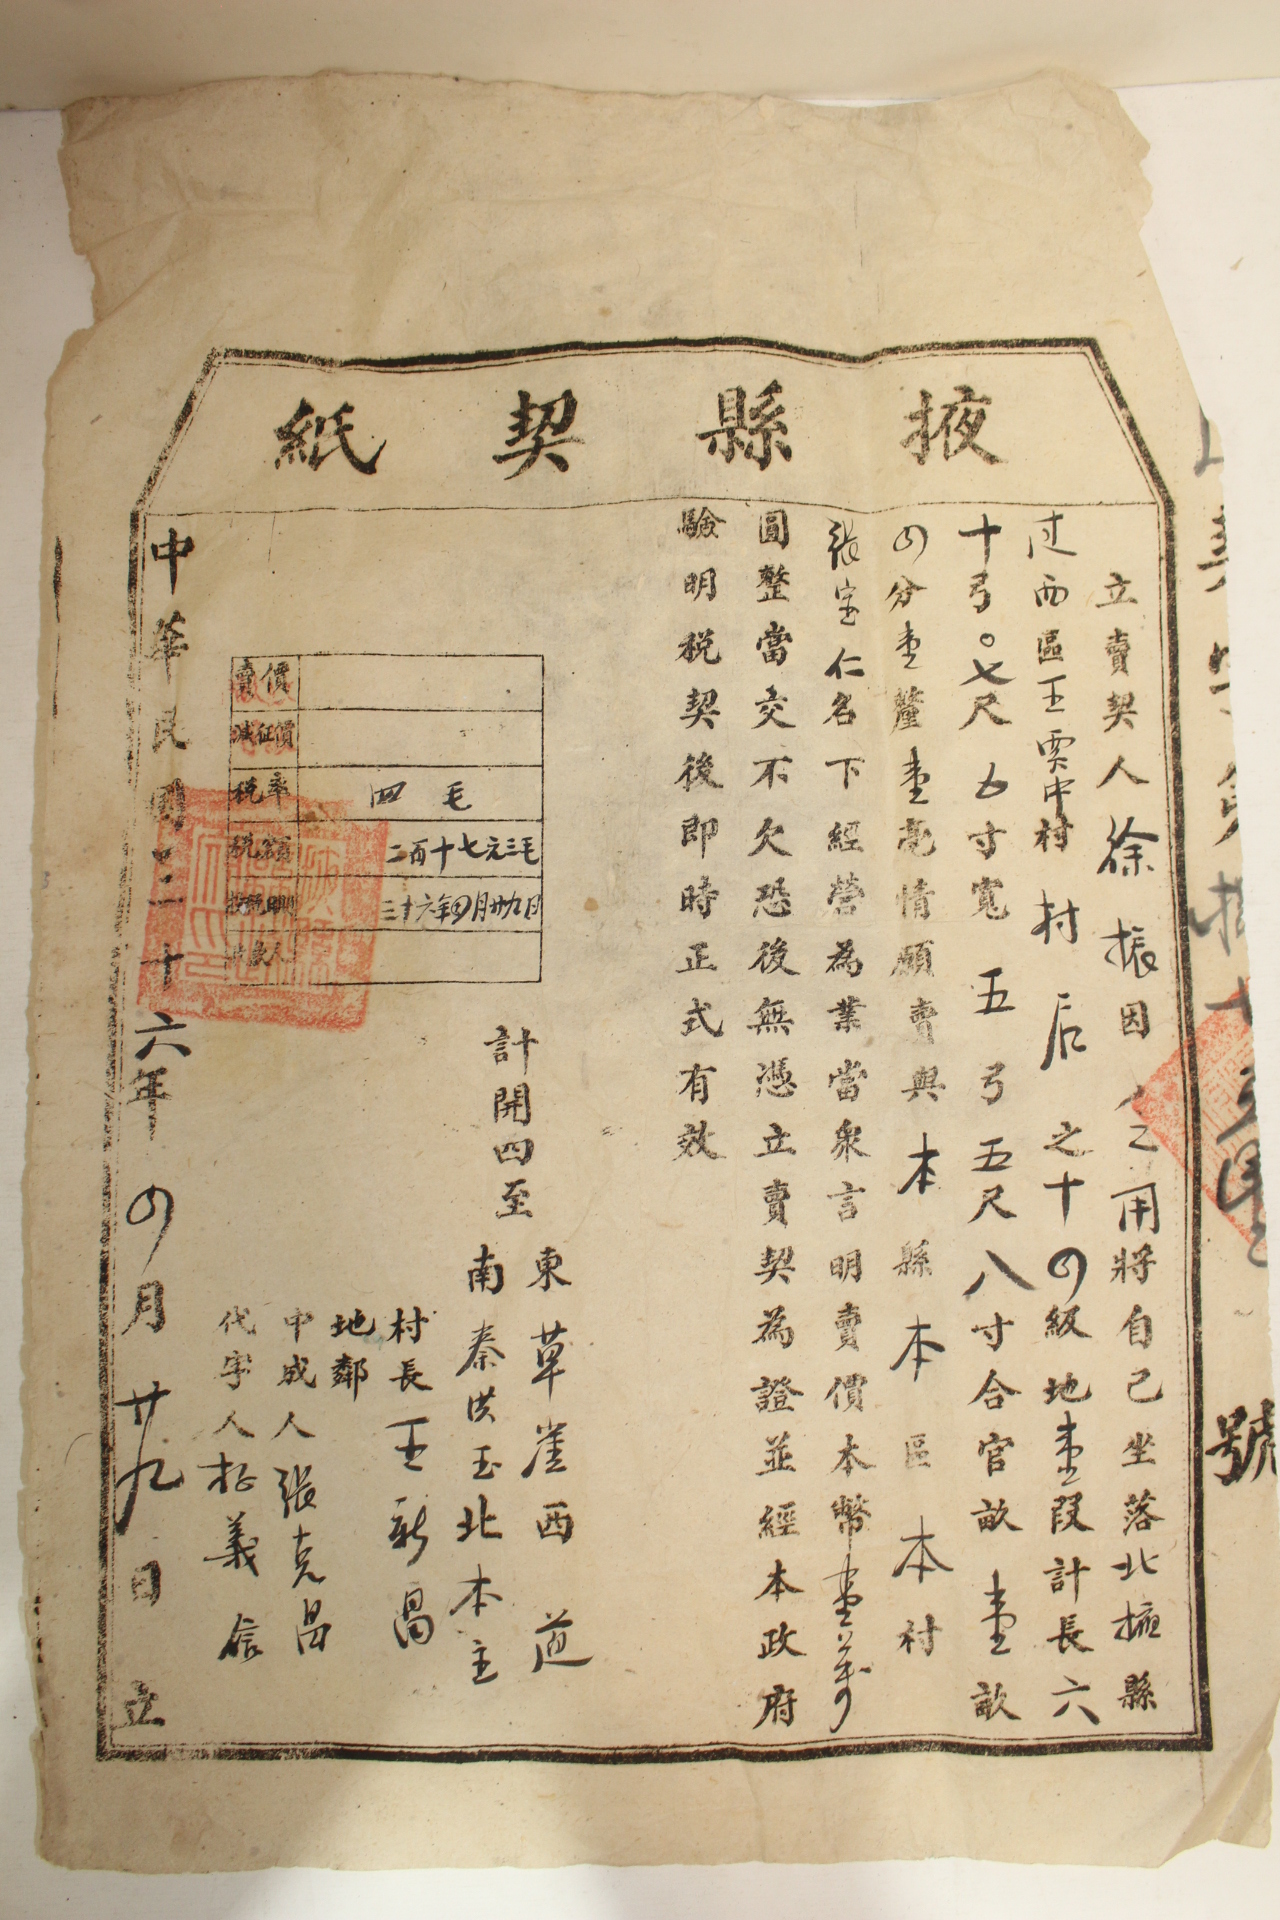 掖縣契紙
立賣契人徐振因人乏用將自己坐落北掖縣
过西區王賈中村村后之十四級地壹段計長六
十弓〇七尺五寸寬五弓五尺八寸合官畝壹畝
四分壹釐壹亳情願賣與本縣本區本村
張宝仁名下經營為業當衆言明賣價本幣壹萬
圓整當交不欠恐後無憑立賣契為證並經本政府
驗明税契後即時正式有效
計開四至
東草崖西道
南秦洪玉北本主
賣價
減征價
税率 四毛
税額 二百十七元三毛
三十六年四月廿九日
村長王新昌
地鄰
中成人張克昌
代字人 義信
中華民國三十六年四月廿九日立
號